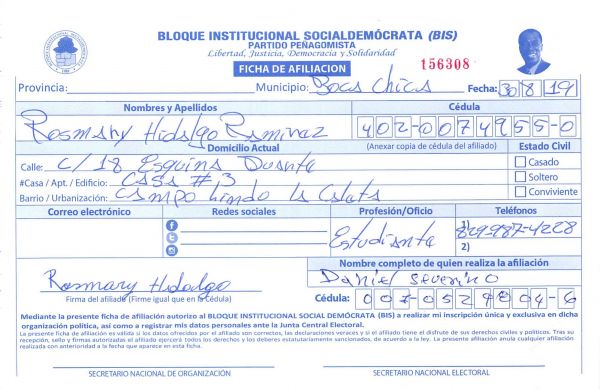 BLOQUE INSTITUCIONAL SOCIALDEMÓCRATA (BIS)
PARTIDO PEÑAGOMISTA
Libertad, Justicia, Democracia y Solidaridad
FICHA DE AFILIACION
156308
Provincia: Municipio: Boca Chica Fecha: 30/8/19
Nombres y Apellidos Cédula
Rosmary Hidalgo Ramirez 402-0074955-0
Domicilio Actual (Anexar copia de cédula del afiliado) Estado Civil
Calle: C/18 Esquina Duarte Casado
#Casa / Apt. / Edificio: Casa #3 Soltero
Barrio / Urbanización: Campo Lindo La Caleta Conviviente
Correo electrónico Redes sociales Profesión/Oficio Teléfonos
Estudiante 1) 829-987-4228
2)
Nombre completo de quien realiza la afiliación
Rosmary Hidalgo Daniel Severino
Firma del afiliado (Firme igual que en la Cédula) Cédula: 007-0529804-6
Mediante la presente ficha de afiliación autorizo al BLOQUE INSTITUCIONAL SOCIAL DEMÓCRATA (BIS) a realizar mi inscripción única y exclusiva en dicha
organización política, así como a registrar mis datos personales ante la Junta Central Electoral.
La presente ficha de afiliación es valida si los datos ofrecidos por el afiliado son correctos, las declaraciones veraces y si el afiliado tiene el disfrute de sus derechos civiles y políticos. Tras su
recepción, sello y firmas autorizadas el afiliado ejercerá todos los derechos y los deberes estatutariamente sancionados, de acuerdo a la ley. La presente afiliación anula cualquier afiliación
realizada con anterioridad a la fecha que aparece en esta ficha.
SECRETARIO NACIONAL DE ORGANIZACIÓN SECRETARIO NACIONAL ELECTORAL